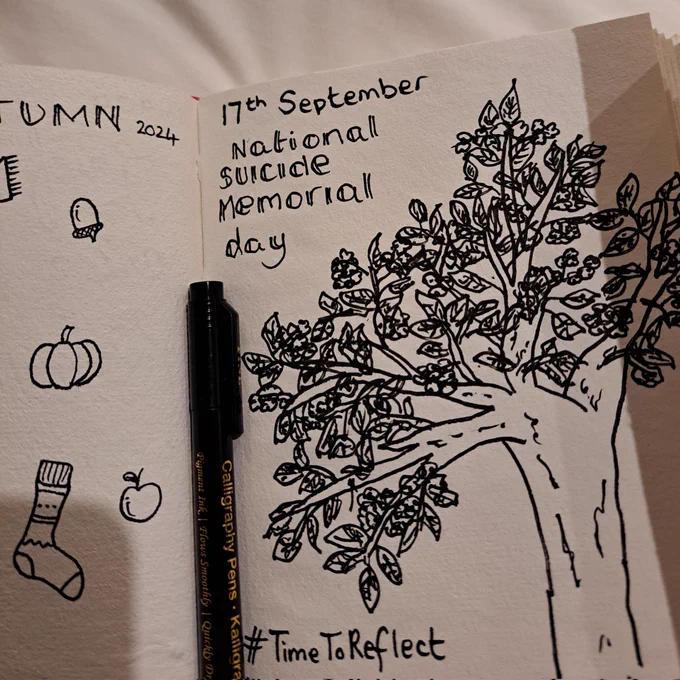 TUMN 2024
17th September
National
Suicide
Memorial
day
Calligraphy Pens · Kalligra
Pigment Ink | Flows Smoothly | Quickly Dr
#TimeToReflect